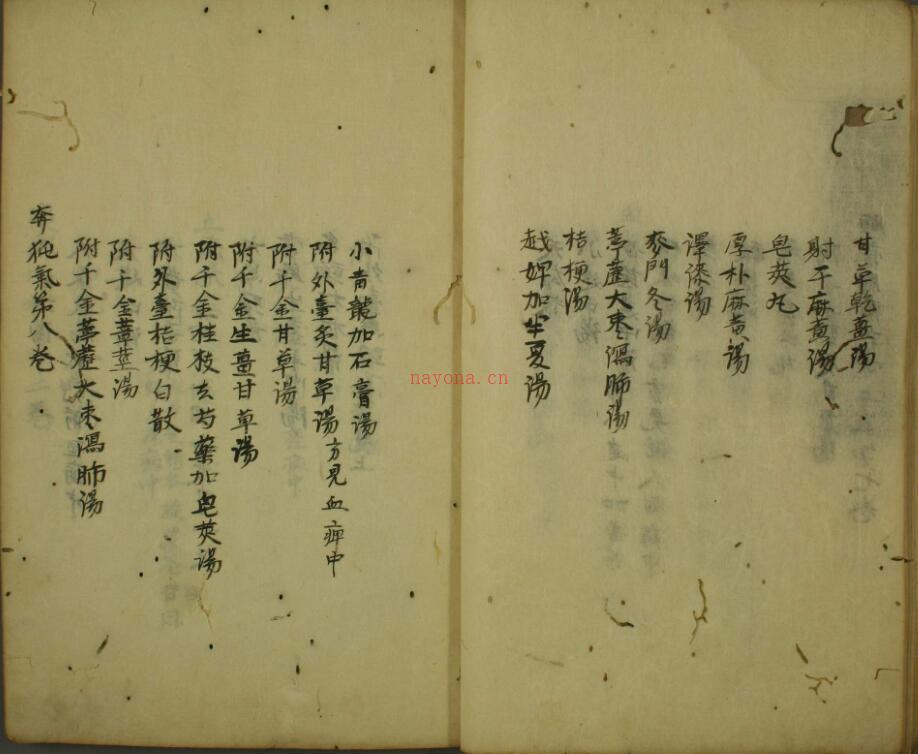 甘草乾薑湯
射干麻黃湯
皂莢丸
厚朴麻黃湯
澤漆湯
麥門冬湯
葶藶大棗瀉肺湯
桔梗湯
越婢加半夏湯
小青龍加石膏湯
附外臺炙甘草湯方見血痺中
附千金甘草湯
附千金生薑甘草湯
附千金桂枝去芍藥加皂莢湯
附外臺桔梗白散
附千金葦莖湯
附千金葶藶大棗瀉肺湯
奔㹠氣第八卷
nayona.cn